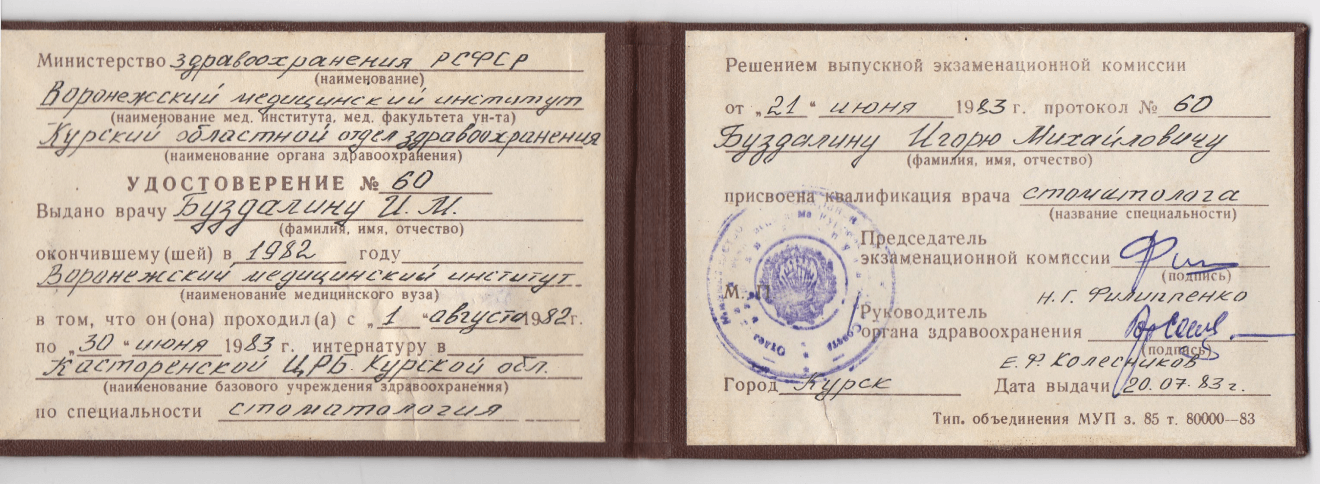 Министерство здравоохранения РСФСР
(наименование)
Воронежский медицинский институт
(наименование мед. института, мед. факультета ун-та)
Курский областной отдел здравоохранения
(наименование органа здравоохранения)
УДОСТОВЕРЕНИЕ № 60
Выдано врачу Буздалину И. М.
(фамилия, имя, отчество)
окончившему (шей) в 1982 году
Воронежский медицинский институт
(наименование медицинского вуза)
в том, что он (она) проходил (а) с „1“ августа 1982 г.
по „30“ июня 1983 г. интернатуру в
Касторенской ЦРБ. Курской обл.
(наименование базового учреждения здравоохранения)
по специальности стоматология
Решением выпускной экзаменационной комиссии
от „21“ июня 1983 г. протокол № 60
Буздалину Игорю Михайловичу
(фамилия, имя, отчество)
присвоена квалификация врача стоматолога
(название специальности)
Председатель
экзаменационной комиссии
(подпись)
Н. Г. Филиппенко
М. П.
Руководитель
органа здравоохранения
(подпись)
Е. Ф. Колесников
Город Курск Дата выдачи 20.07.83 г.
Тип. объединения МУП з. 85 т. 80000—83